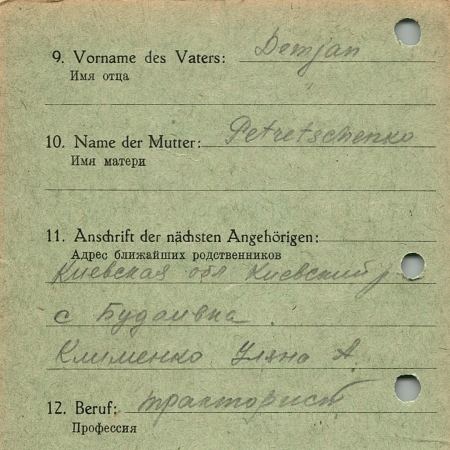 9. Vorname des Vaters: Demjan
Имя отца
10. Name der Mutter: Petretschenko
Имя матери
11. Anschrift der nächsten Angehörigen:
Адрес ближайших родственников
Киевская обл Киевский р
с Будаивка
Клименко Уляна А
12. Beruf: тракторист
Профессия